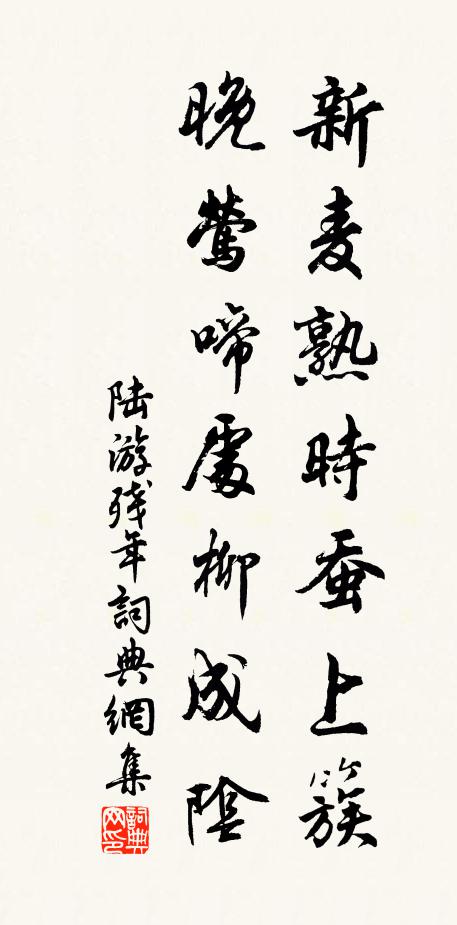 新麦熟時蚕上簇
晚莺啼處柳成陰
陆游残年詞典網集
詞典网印